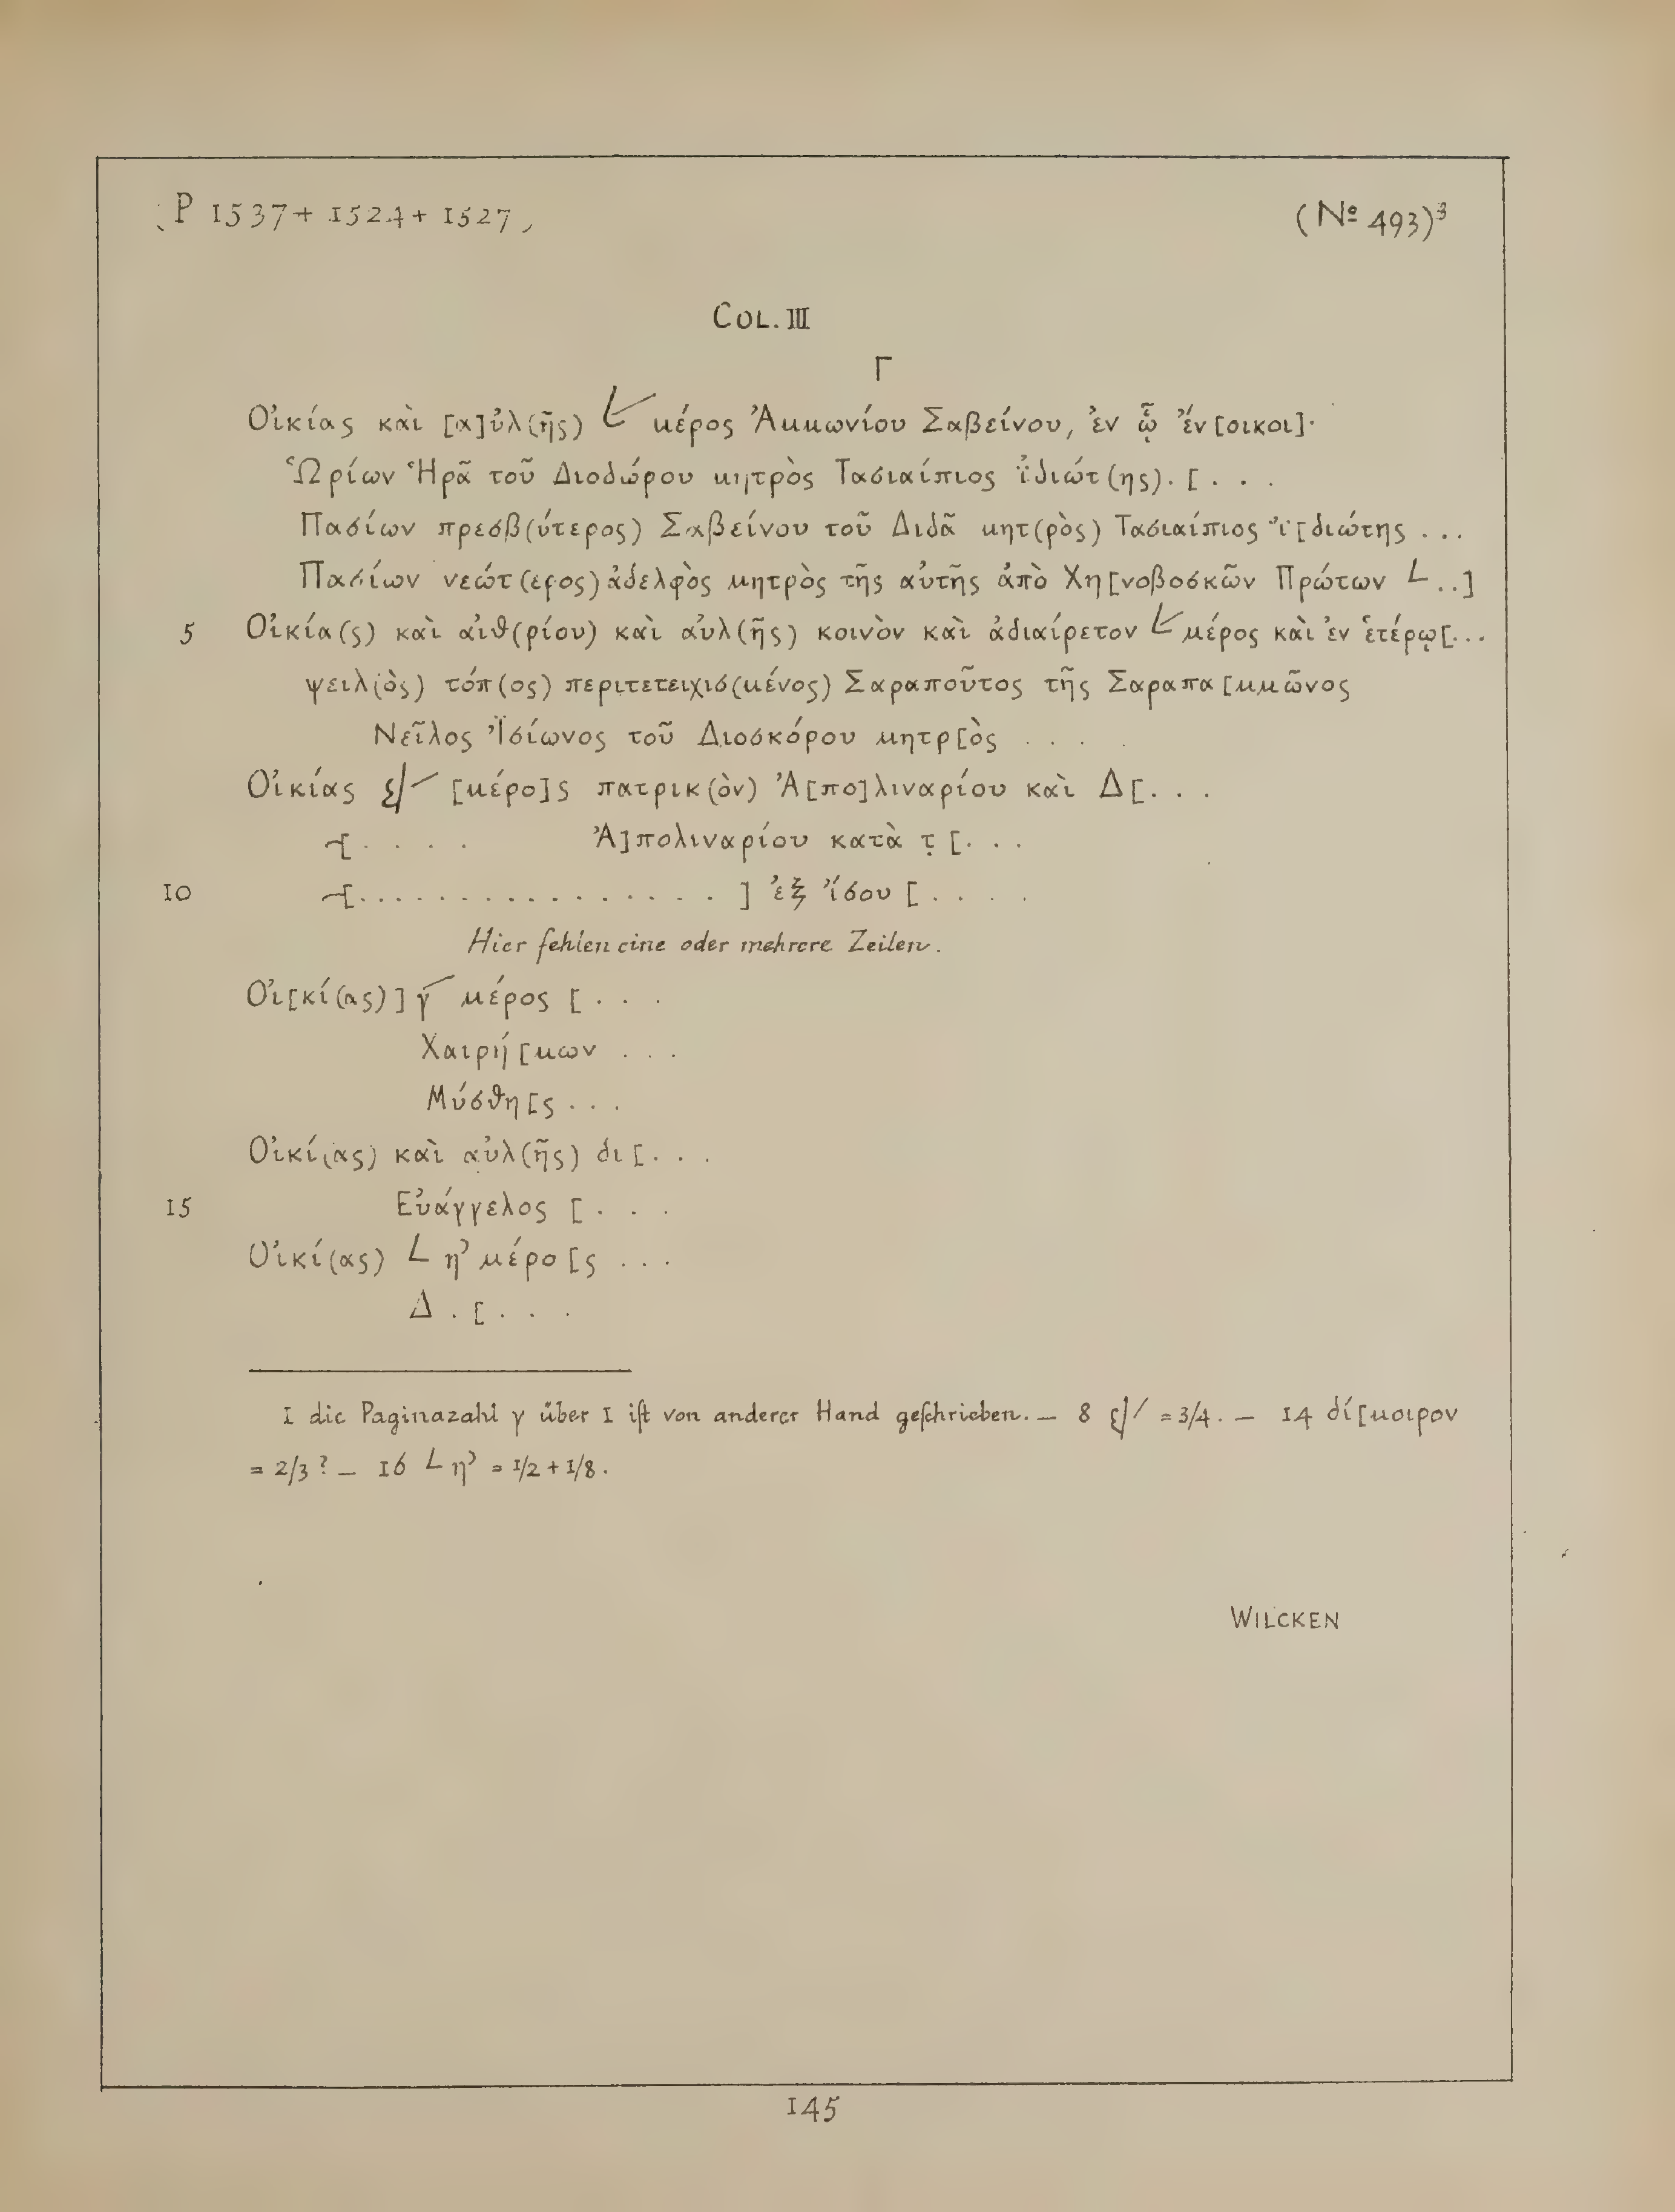 (P 1537 + 1524 + 1527)
(№ 493)³
COL. III
Γ
Οἰκίας καὶ [α]ὐλ(ῆς) 𐅵 μέρος Ἀμμωνίου Σαβείνου, ἐν ᾧ ἔν[οικοι]·
Ὡρίων Ἡρᾶ τοῦ Διοδώρου μητρὸς Τασιαίπιος ἰ̈διώτ(ης). [ . . .
Πασίων πρεσβ(ύτερος) Σαβείνου τοῦ Διδᾶ μητ(ρὸς) Τασιαίπιος ἰ̈[διώτης . . .
Πασίων νεώτ(ερος) ἀδελφὸς μητρὸς τῆς αὐτῆς ἀπὸ Χη[νοβοσκῶν Πρώτων L . .]
5 Οἰκία(ς) καὶ αἰθ(ρίου) καὶ αὐλ(ῆς) κοινὸν καὶ ἀδιαίρετον 𐅵 μέρος καὶ ἐν ἑτέρῳ[ . . .
ψειλ(ὸς) τόπ(ος) περιτετειχισ(μένος) Σαραποῦτος τῆς Σαραπα[μμῶνος
Νεῖλος Ἰ̈σίωνος τοῦ Διοσκόρου μητρ[ὸς . . . .
Οἰκίας [μέρο]ς πατρικ(ὸν) Ἀ[πο]λιναρίου καὶ Δ[ . . .
–[ . . . . Ἀ]πολιναρίου κατὰ τ̣ [ . . .
10 –[ . . . . . . . . . . . . . . . ] ἐξ ἴσου [ . . . .
Hier fehlen eine oder mehrere Zeilen.
Οἰ[κί(ας)] γ´ μέρος [ . . .
Χαιρή[μων . . .
Μύσθη[ς . . .
Οἰκί(ας) καὶ αὐλ(ῆς) δι[ . . .
15 Εὐάγγελος [ . . .
Οἰκί(ας) L η’ μέρο[ς . . .
Δ . [ . . .
1 die Paginazahl γ über 1 iſt von anderer Hand geſchrieben. — 8 = 3/4. — 14 δί[μοιρον
= 2/3 ? — 16 L η’ = 1/2 + 1/8.
WILCKEN
145